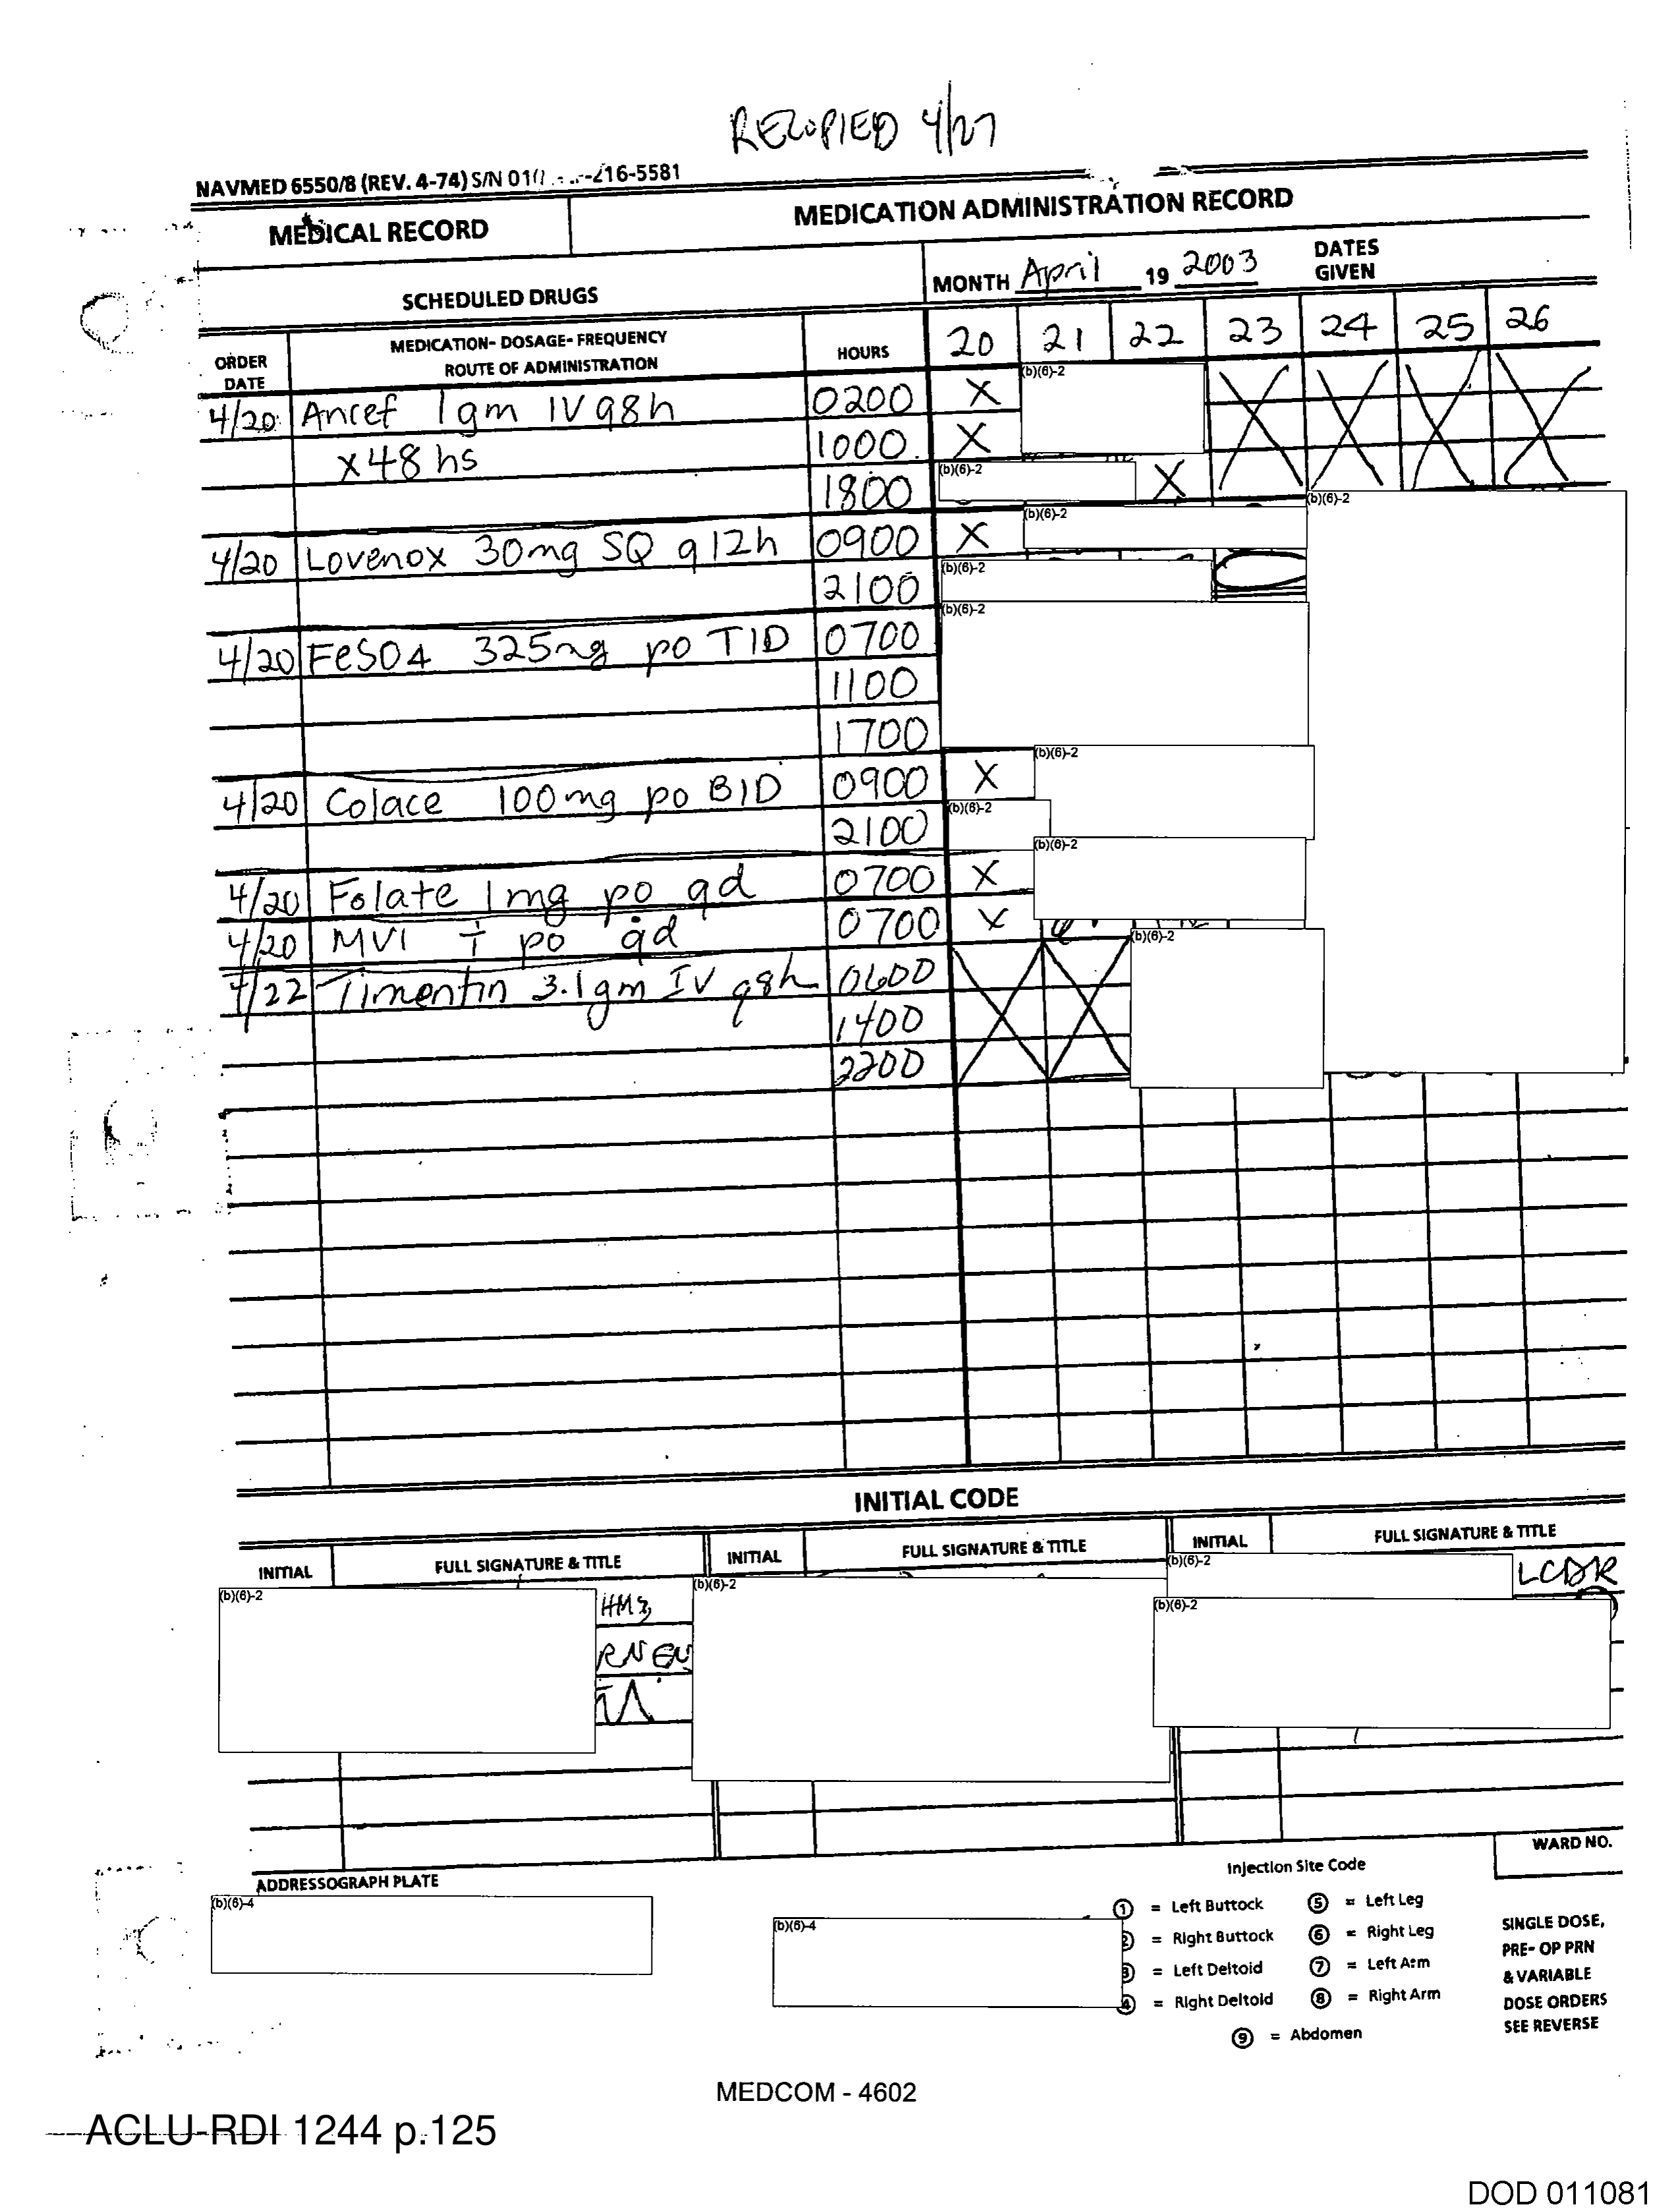 RECOPIED 4/27
NAVMED 6550/8 (REV. 4-74) S/N -216-5581
MEDICAL RECORD
MEDICATION ADMINISTRATION RECORD
SCHEDULED DRUGS
MONTH April 19 2003 DATES GIVEN
ORDER DATE
MEDICATION- DOSAGE- FREQUENCY
ROUTE OF ADMINISTRATION
HOURS
20 21 22 23 24 25 26
4/20 Ancef 1gm IV q8h 0200 X (b)(6)-2
x48 hs 1000 X
1800 (b)(6)-2 X (b)(6)-2
4/20 Lovenox 30mg SQ q12h 0900 X (b)(6)-2
2100 (b)(6)-2
4/20 FeSO4 325mg po TID 0700 (b)(6)-2
1100
1700
4/20 Colace 100mg po BID 0900 X (b)(6)-2
2100 (b)(6)-2
4/20 Folate 1mg po qd 0700 X (b)(6)-2
4/20 MVI T po qd 0700 X
4/22 Timentin 3.1gm IV q8h 0600 (b)(6)-2
1400
2200
INITIAL CODE
INITIAL FULL SIGNATURE & TITLE INITIAL FULL SIGNATURE & TITLE INITIAL FULL SIGNATURE & TITLE
(b)(6)-2 HM3 (b)(6)-2 (b)(6)-2 LCDR
(b)(6)-2
RN
WARD NO.
ADDRESSOGRAPH PLATE
(b)(6)-4
(b)(6)-4
Injection Site Code
1 = Left Buttock 5 = Left Leg
2 = Right Buttock 6 = Right Leg
3 = Left Deltoid 7 = Left Arm
4 = Right Deltoid 8 = Right Arm
9 = Abdomen
SINGLE DOSE,
PRE- OP PRN
& VARIABLE
DOSE ORDERS
SEE REVERSE
MEDCOM - 4602
ACLU-RDI 1244 p.125
DOD 011081